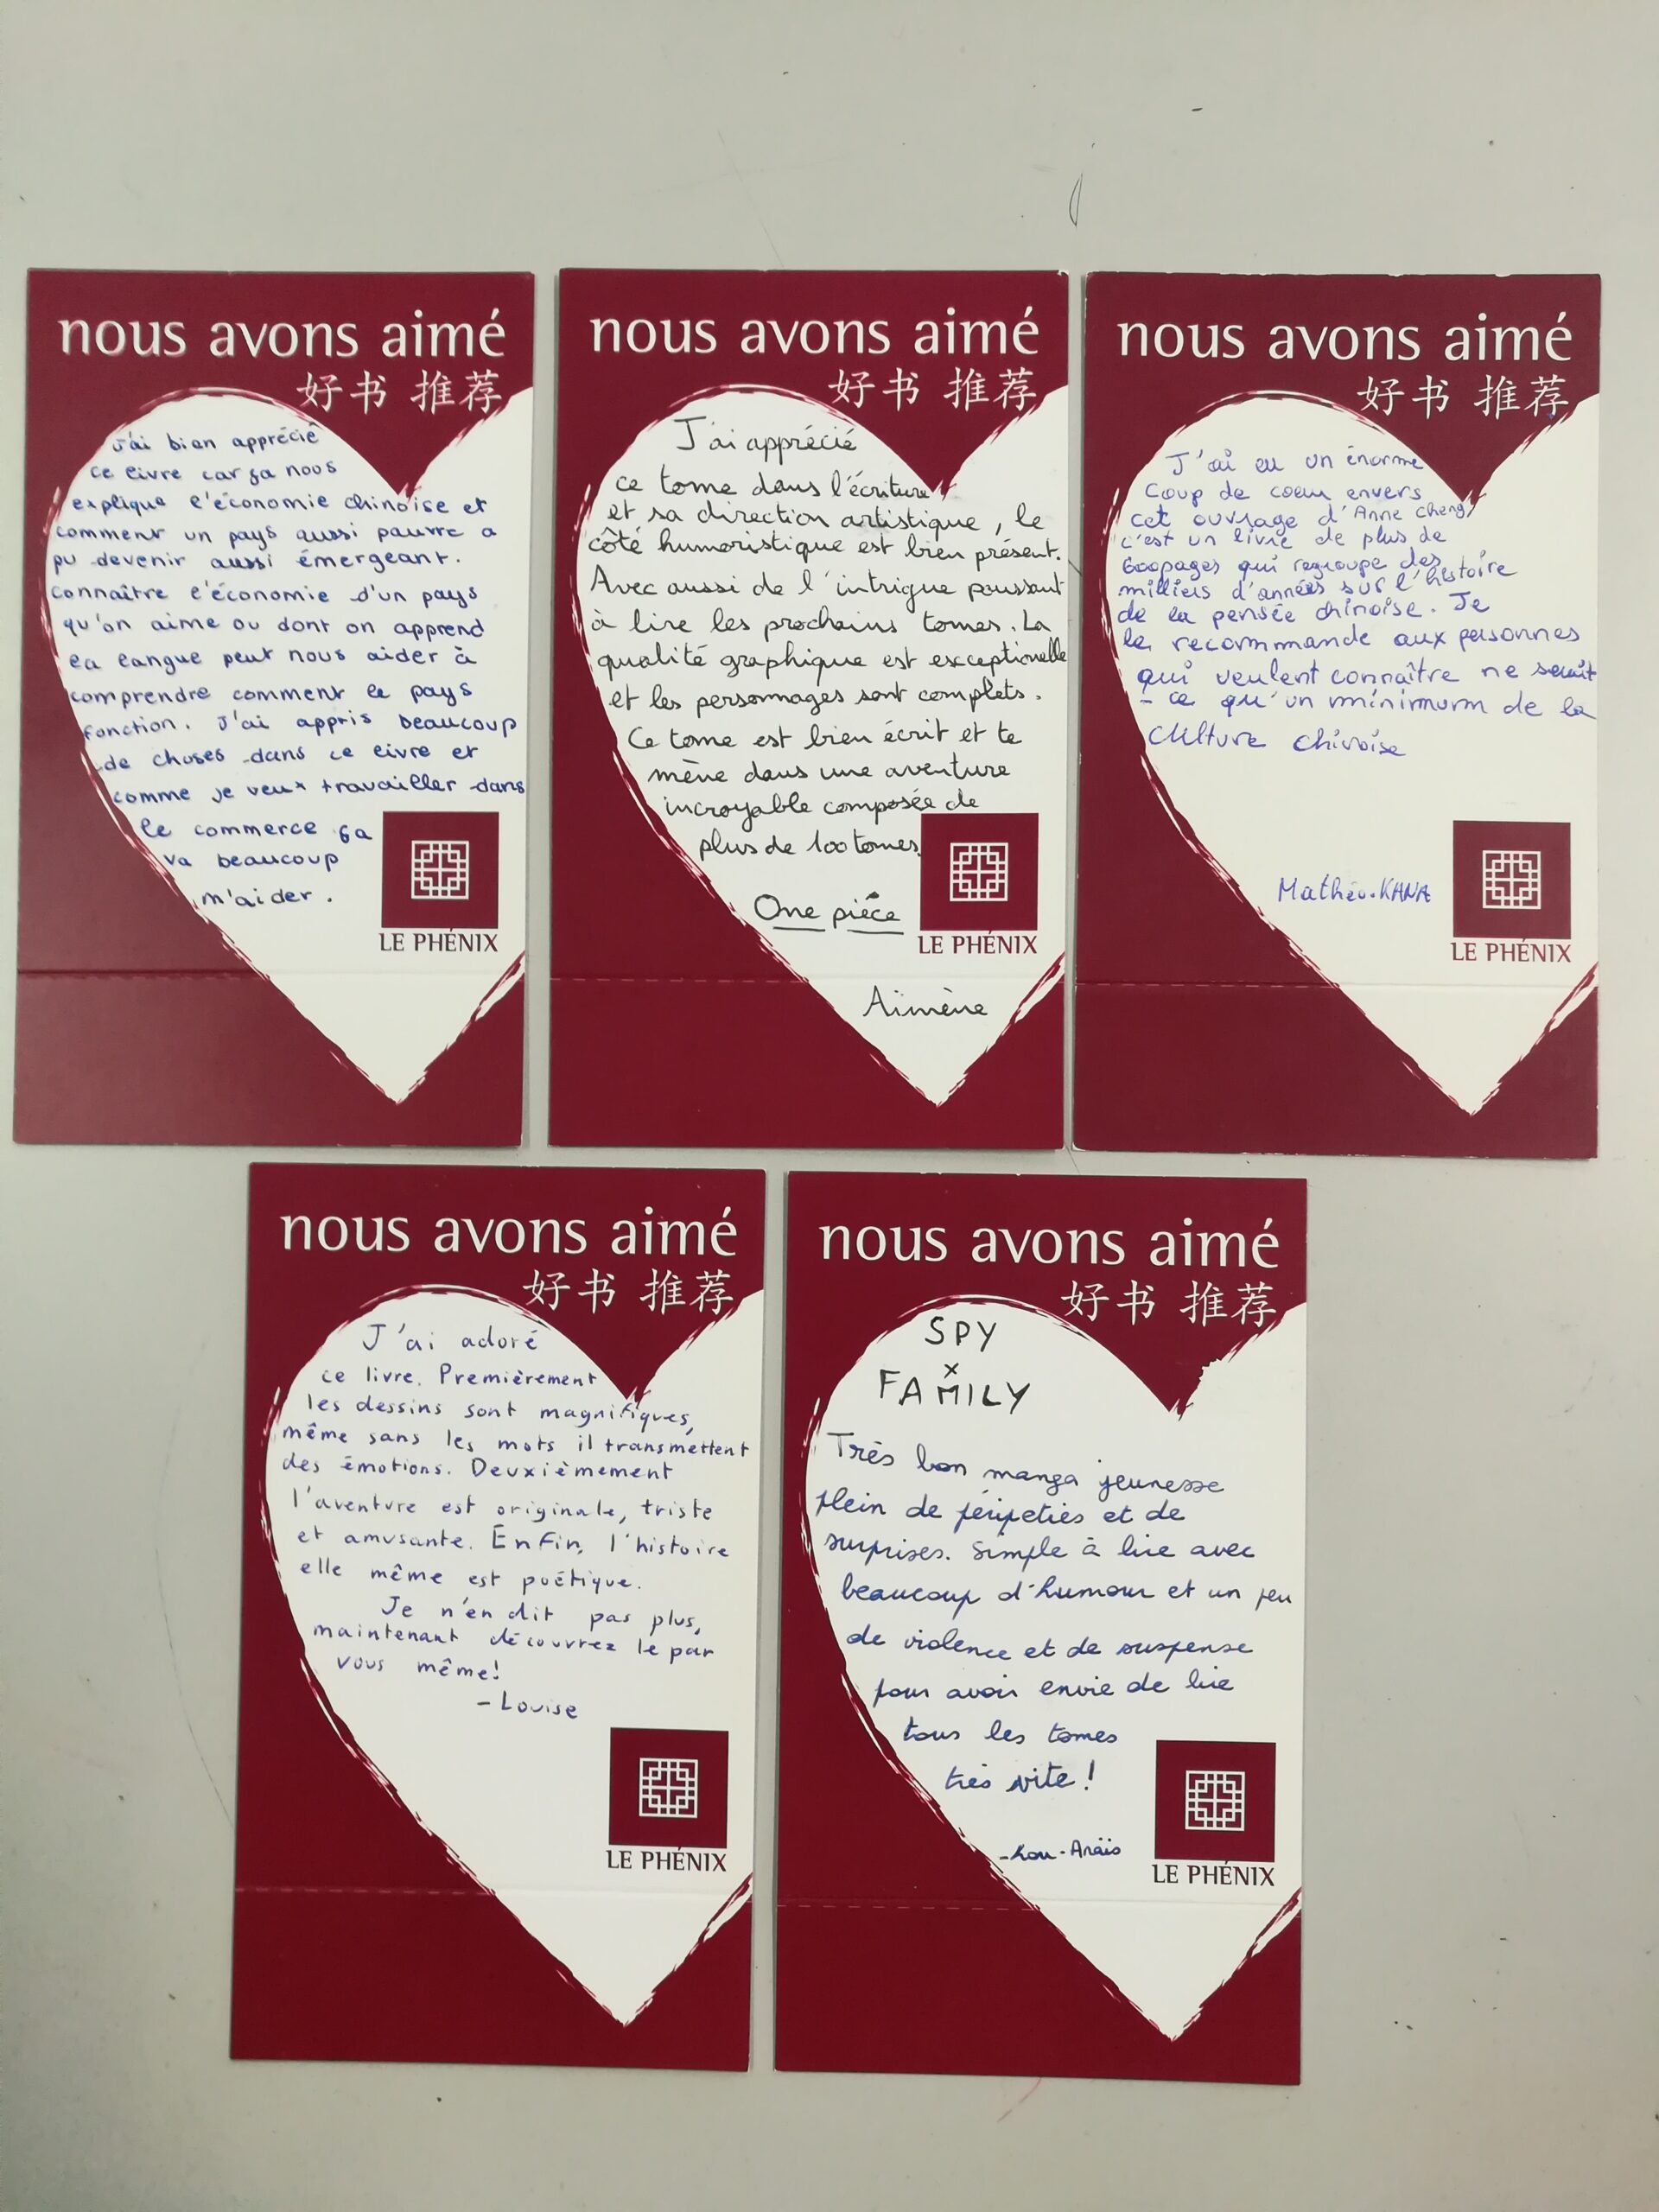 nous avons aimé
好书 推荐
J'ai bien apprécié
ce livre car ça nous
explique l'économie chinoise et
comment un pays aussi pauvre a
pu devenir aussi émergeant.
connaître l'économie d'un pays
qu'on aime ou dont on apprend
la langue peut nous aider à
comprendre comment le pays
fonction. J'ai appris beaucoup
de choses dans ce livre et
comme je veux travailler dans
le commerce ça
va beaucoup
m'aider.
LE PHÉNIX
nous avons aimé
好书 推荐
J'ai apprécié
ce tome dans l'écriture
et sa direction artistique, le
côté humoristique est bien présent.
Avec aussi de l'intrigue poussant
à lire les prochains tomes. La
qualité graphique est exceptionelle
et les personnages sont complets.
Ce tome est bien écrit et te
mène dans une aventure
incroyable composée de
plus de 100 tomes.
One piéce
LE PHÉNIX
Aïmène
nous avons aimé
好书 推荐
J'ai eu un énorme
coup de coeur envers
cet ouvrage d'Anne Cheng,
c'est un livre de plus de
600pages qui regroupe des
milliers d'années sur l'histoire
de la pensée chinoise. Je
le recommande aux personnes
qui veulent connaître ne serait
- ce qu'un minimum de la
culture chinoise
Mathéo.KANA
LE PHÉNIX
nous avons aimé
好书 推荐
J'ai adoré
ce livre. Premièrement
les dessins sont magnifiques,
même sans les mots il transmettent
des émotions. Deuxièmement
l'aventure est originale, triste
et amusante. Enfin, l'histoire
elle même est poétique.
Je n'en dit pas plus,
maintenant découvrez le par
vous même!
- Louise
LE PHÉNIX
nous avons aimé
好书 推荐
SPY
x
FAMILY
Très bon manga jeunesse
plein de péripeties et de
surprises. Simple à lire avec
beaucoup d'humour et un peu
de violence et de suspense
pour avoir envie de lire
tous les tomes
très vite !
-Lou-Anaïs
LE PHÉNIX